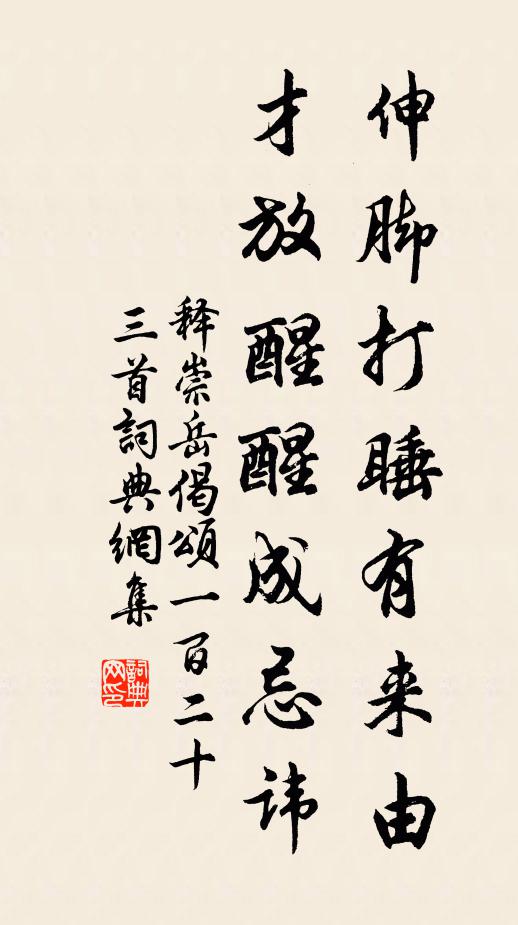 伸脚打睡有来由
才放醒醒成忌讳
释崇岳偈頌一百二十
三首詞典網集
詞典网印